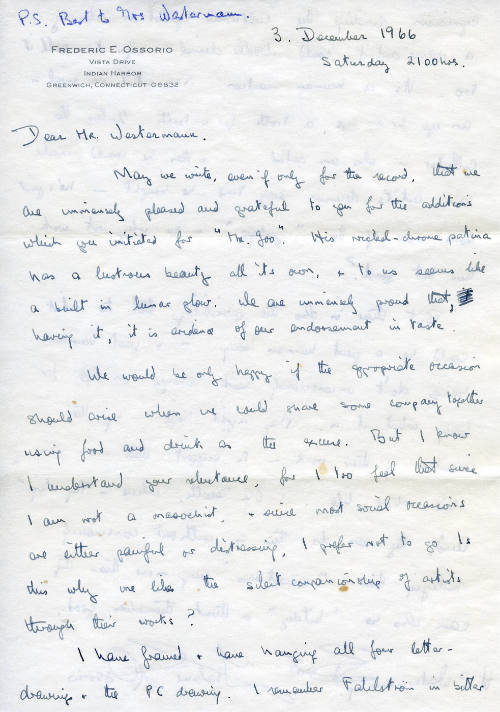 P.S. Best to Mrs Westermann.
3. December 1966
Saturday 2100hrs.
FREDERIC E. OSSORIO
VISTA DRIVE
INDIAN HARBOR
GREENWICH, CONNECTICUT 06832
Dear Mr. Westermann.
May we write, even if only for the record, that we
are immensely pleased and grateful to you for the additions
which you initiated for "Mr. Goo". His nickel-chrome patina
has a lustrous beauty all its own, & to us seems like
a built in lunar glow. We are immensely proud that,
having it, it is evidence of our endorsement in taste.
We would be only happy if the appropriate occasion
should arise when we could share some company together
using food and drink as the excuse. But I know
I understand your reluctance, for I too feel that since
I am not a masochist, & since most social occasions
are either painful or distressing, I prefer not to go. Is
this why one likes the silent companionship of artists
through their works?
I have framed & have hanging all four letter-
drawings & the PC drawing. I remember Fahlström in bitter